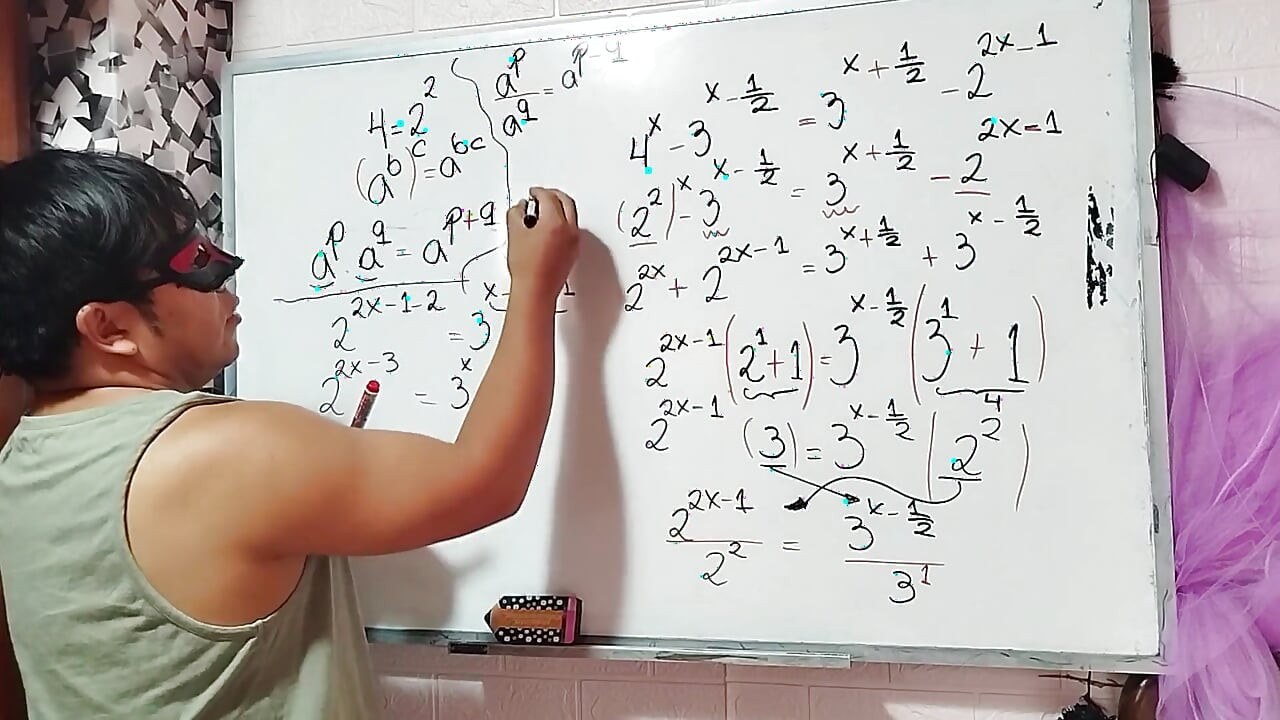 4=2^2
(a^b)^c=a^{bc}
a^p · a^q = a^{p+q}
a^p/a^q = a^{p-q}
4^x - 3^{x-1/2} = 3^{x+1/2} - 2^{2x-1}
(2^2)^x - 3^{x-1/2} = 3^{x+1/2} - 2^{2x-1}
2^{2x} + 2^{2x-1} = 3^{x+1/2} + 3^{x-1/2}
2^{2x-1}(2^1+1) = 3^{x-1/2}(3^1+1)
4
2^{2x-1}(3) = 3^{x-1/2}(2^2)
2^{2x-1}/2^2 = 3^{x-1/2}/3^1
2^{2x-1-2} = 3^{x- 1}
2^{2x-3} = 3^x